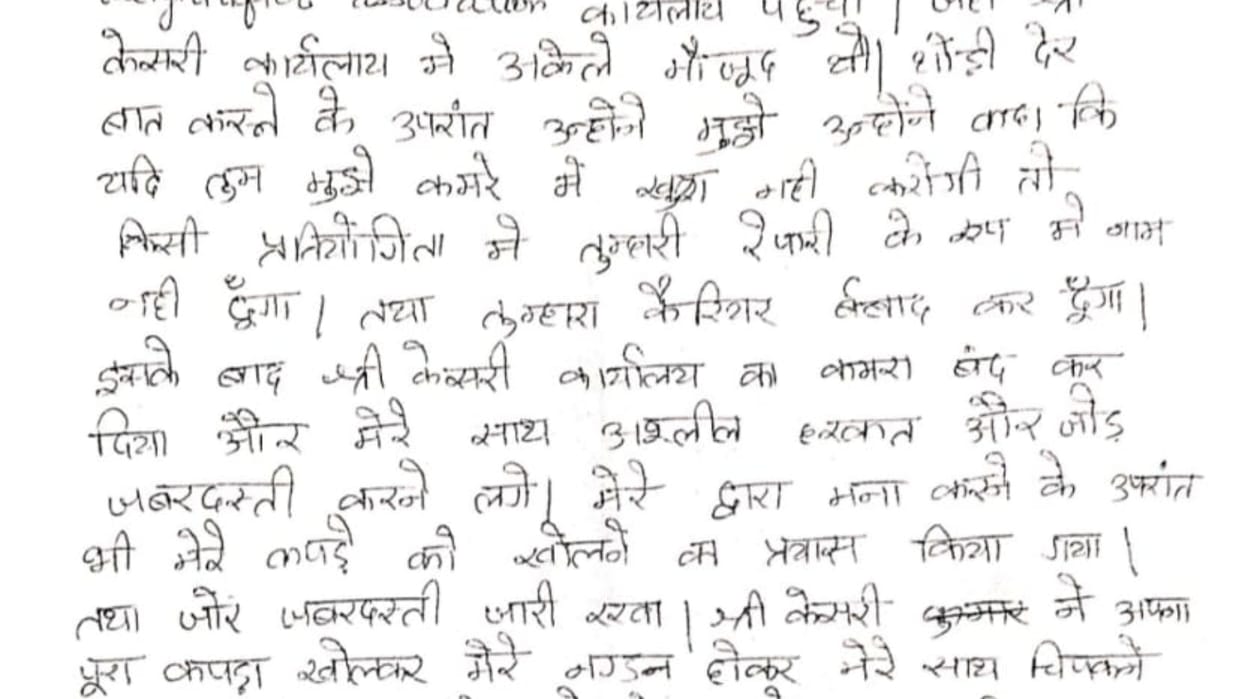 कार्यलाय पहुचा।
केसरी कार्यलाय मे अकेले मौजूद थे। थोंड़ी देर
बात करने के उपरांत उन्होने मुझे उन्होंने कहा कि
यदि तुम मुझे कमरे में खुश नही करोगी तो
किसी प्रतियोंगिता मे तुम्हारी रेफरी के रूप मे नाम
नही दूँगा। तथा तुम्हारा कैरियर र्बबाद कर दूँगा।
इसके बाद श्री केसरी कार्यालय का कमरा बंद कर
दिया और मेरे साथ अश्लील हरकत और जोड़
जबरदस्ती करने लगे। मेरे द्वारा मना करने के उपरांत
भी मेरे कपड़े को खोलने का प्रयास किया गया।
तथा जोर जबरदस्ती जारी रखा। श्री केसरी कुमार ने अपना
पूरा कपड़ा खोलकर मेरे होकर मेरे साथ चिपकने